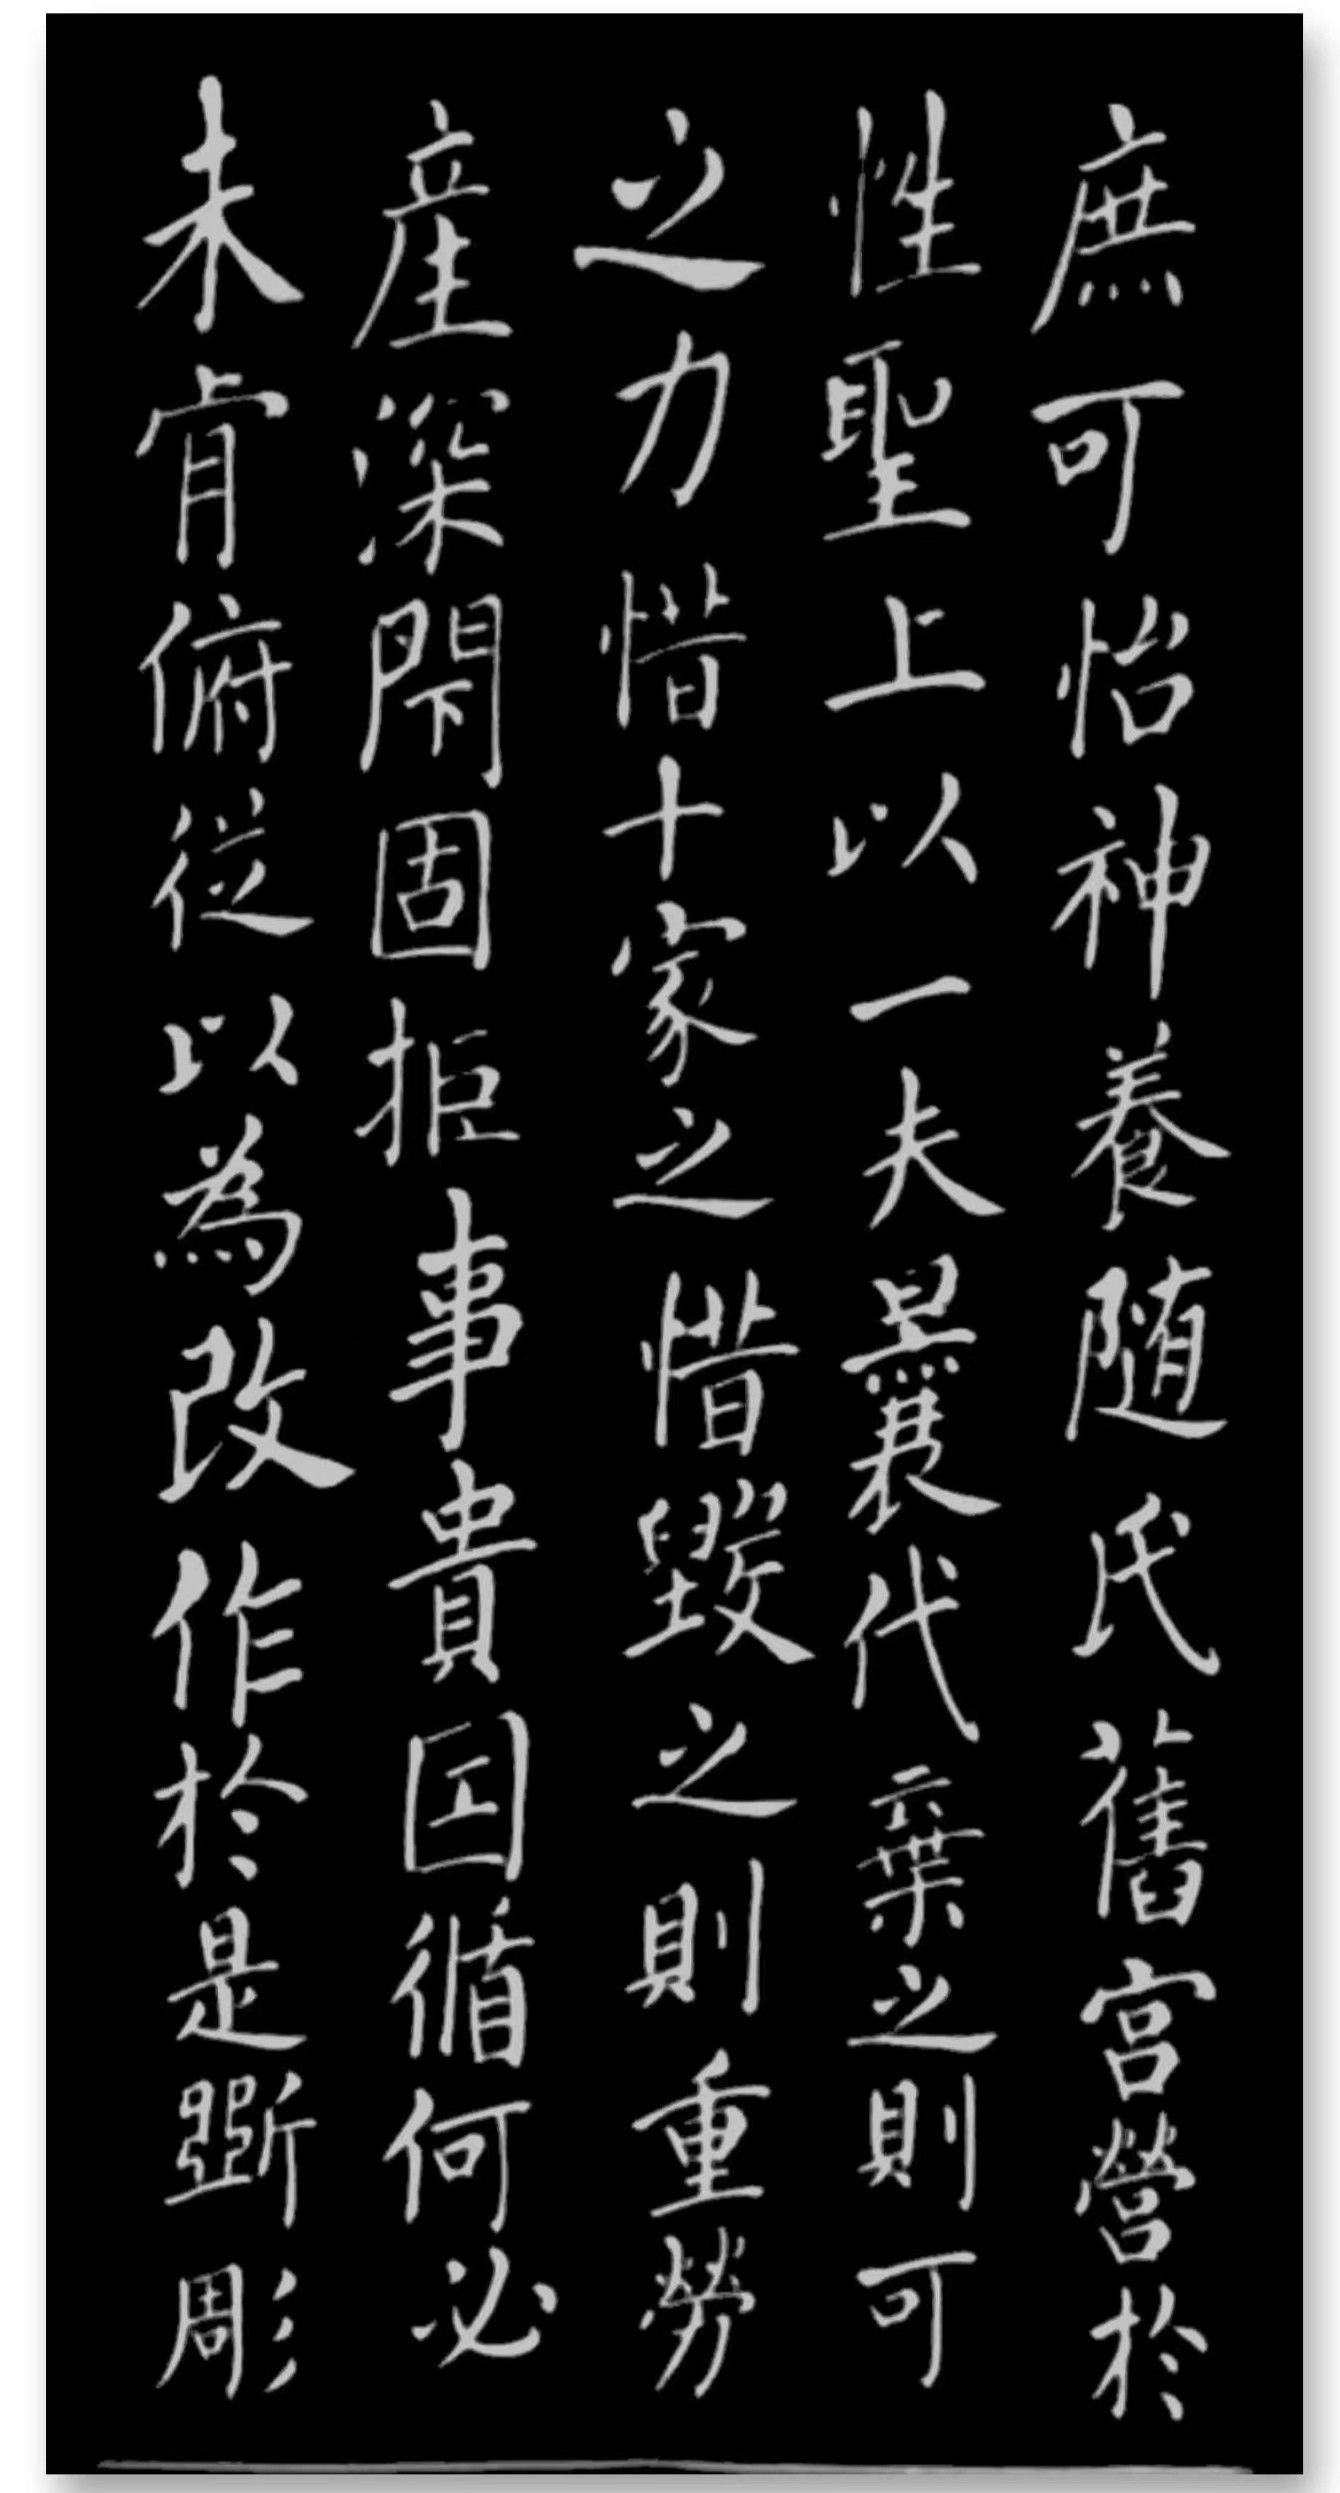 庶可怡神養随氏舊宮營於
性聖上以一夫曩代棄之則可
之力惜十家之惜毀之則重勞
産深閇固拒事貴因循何必
未肯俯從以為改作於是斲彫